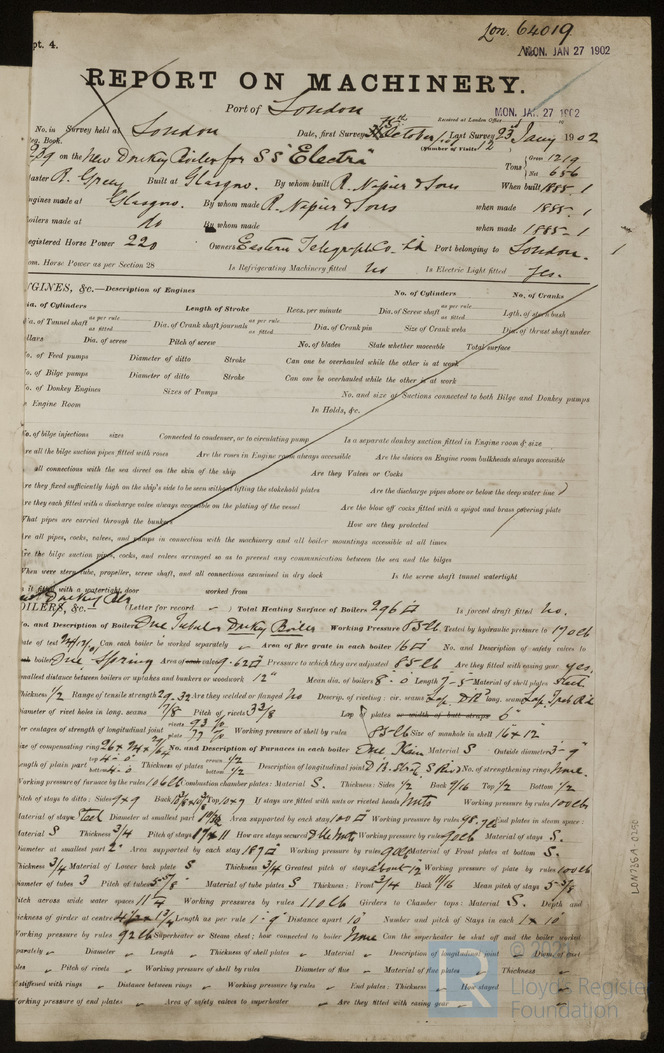 pt. 4.
Lon. 64019
MON. JAN 27 1902
REPORT ON MACHINERY.
Port of London
Received at London Office MON. JAN 27 1902
No. in Survey held at London Date, first Survey October Last Survey 23 Jany 1902
Reg. Book. (Number of Visits 12)
239 on the New Donkey Boiler for SS "Electra" Tons Gross 1219 Net 656
Master R. Greey Built at Glasgow. By whom built R. Napier & Sons When built 1885-1
Engines made at Glasgow. By whom made R. Napier & Sons when made 1885-1
Boilers made at do By whom made do when made 1885-1
Registered Horse Power 220 Owners Eastern Telegraph Co. Ld Port belonging to London.
Nom. Horse Power as per Section 28 Is Refrigerating Machinery fitted No Is Electric Light fitted Yes.
NGINES, &c.—Description of Engines No. of Cylinders No. of Cranks
Dia. of Cylinders Length of Stroke Revs. per minute Dia. of Screw shaft as per rule as fitted Lgth. of stern bush
Dia. of Tunnel shaft as per rule as fitted Dia. of Crank shaft journals as per rule as fitted Dia. of Crank pin Size of Crank webs Dia. of thrust shaft under
collars Dia. of screw Pitch of screw No. of blades State whether moveable Total surface
No. of Feed pumps Diameter of ditto Stroke Can one be overhauled while the other is at work
No. of Bilge pumps Diameter of ditto Stroke Can one be overhauled while the other is at work
No. of Donkey Engines Sizes of Pumps No. and size of Suctions connected to both Bilge and Donkey pumps
In Engine Room In Holds, &c.
No. of bilge injections sizes Connected to condenser, or to circulating pump Is a separate donkey suction fitted in Engine room & size
Are all the bilge suction pipes fitted with roses Are the roses in Engine room always accessible Are the sluices on Engine room bulkheads always accessible
all connections with the sea direct on the skin of the ship Are they Valves or Cocks
Are they fixed sufficiently high on the ship's side to be seen without lifting the stokehold plates Are the discharge pipes above or below the deep water line
Are they each fitted with a discharge valve always accessible on the plating of the vessel Are the blow off cocks fitted with a spigot and brass covering plate
What pipes are carried through the bunkers How are they protected
Are all pipes, cocks, valves, and pumps in connection with the machinery and all boiler mountings accessible at all times
Are the bilge suction pipes, cocks, and valves arranged so as to prevent any communication between the sea and the bilges
When were stern tube, propeller, screw shaft, and all connections examined in dry dock Is the screw shaft tunnel watertight
Is it fitted with a watertight door worked from
BOILERS, &c.— (Letter for record ) Total Heating Surface of Boilers 296 Is forced draft fitted No.
No. and Description of Boilers One Tubular Donkey Boiler Working Pressure 85 lb Tested by hydraulic pressure to 170 lb
Date of test Can each boiler be worked separately Area of fire grate in each boiler 16 No. and Description of safety valves to
each boiler One Spring Area of each valve 9.62 Pressure to which they are adjusted 85 lb Are they fitted with easing gear yes.
Smallest distance between boilers or uptakes and bunkers or woodwork 12" Mean dia. of boilers 8-0 Length 7-5 Material of shell plates Steel
Thickness 1/2 Range of tensile strength 29-32 Are they welded or flanged No Descrip. of riveting: cir. seams Lap. long. seams Lap.
Diameter of rivet holes in long. seams 7/8 Pitch of rivets 3 3/8 Lap of plates or width of butt straps 6"
Per centages of strength of longitudinal joint rivets 93 plate 77 Working pressure of shell by rules 85 lb Size of manhole in shell 16 x 12
Size of compensating ring No. and Description of Furnaces in each boiler One Plain Material S Outside diameter 3-9"
Length of plain part top bottom Thickness of plates crown 1/2 bottom 1/2 Description of longitudinal joint No. of strengthening rings None.
Working pressure of furnace by the rules 106 lb Combustion chamber plates: Material S. Thickness: Sides 1/2 Back 7/16 Top 1/2 Bottom 1/2
Pitch of stays to ditto: Sides 9 x 9 Back Top 10 x 9 If stays are fitted with nuts or riveted heads Nuts Working pressure by rules 100 lb
Material of stays Steel Diameter at smallest part Area supported by each stay 100 Working pressure by rules End plates in steam space:
Material S Thickness 3/4 Pitch of stays How are stays secured Working pressure by rules 90 lb Material of stays S.
Diameter at smallest part 2" Area supported by each stay 187 Working pressure by rules 90 lb Material of Front plates at bottom S.
Thickness 3/4 Material of Lower back plate S Thickness 3/4 Greatest pitch of stays about 12 Working pressure of plate by rules 100 lb
Diameter of tubes 3 Pitch of tubes Material of tube plates S Thickness: Front 3/4 Back 11/16 Mean pitch of stays
Pitch across wide water spaces 11 Working pressures by rules 110 lb Girders to Chamber tops: Material S. Depth and
thickness of girder at centre Length as per rule 1-9" Distance apart 10" Number and pitch of Stays in each 1 x 10"
Working pressure by rules 92 lb Superheater or Steam chest; how connected to boiler None Can the superheater be shut off and the boiler worked
separately Diameter Length Thickness of shell plates Material Description of longitudinal joint Diam. of rivet
holes Pitch of rivets Working pressure of shell by rules Diameter of flue Material of flue plates Thickness
If stiffened with rings Distance between rings Working pressure by rules End plates: Thickness How stayed
Working pressure of end plates Area of safety valves to superheater Are they fitted with easing gear
Lloyd's Register
Foundation